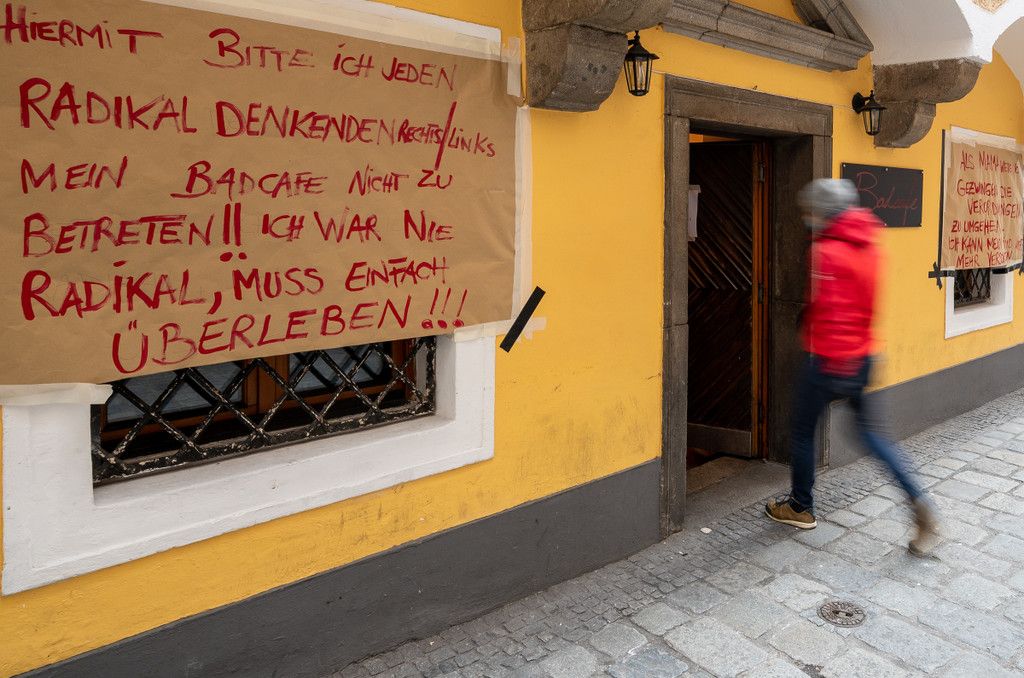 HIERMIT BITTE ICH JEDEN
RADIKAL DENKENDEN RECHTS/LINKS
MEIN BADCAFE NICHT ZU
BETRETEN!! ICH WAR NIE
RADIKAL, MUSS EINFACH
ÜBERLEBEN!!!
Badcafe
ALS MAMA
GEZWUNGEN DIE
VERORDNUNGEN
ZU UMGEHEN..
ICH KANN
MEHR WERDEN